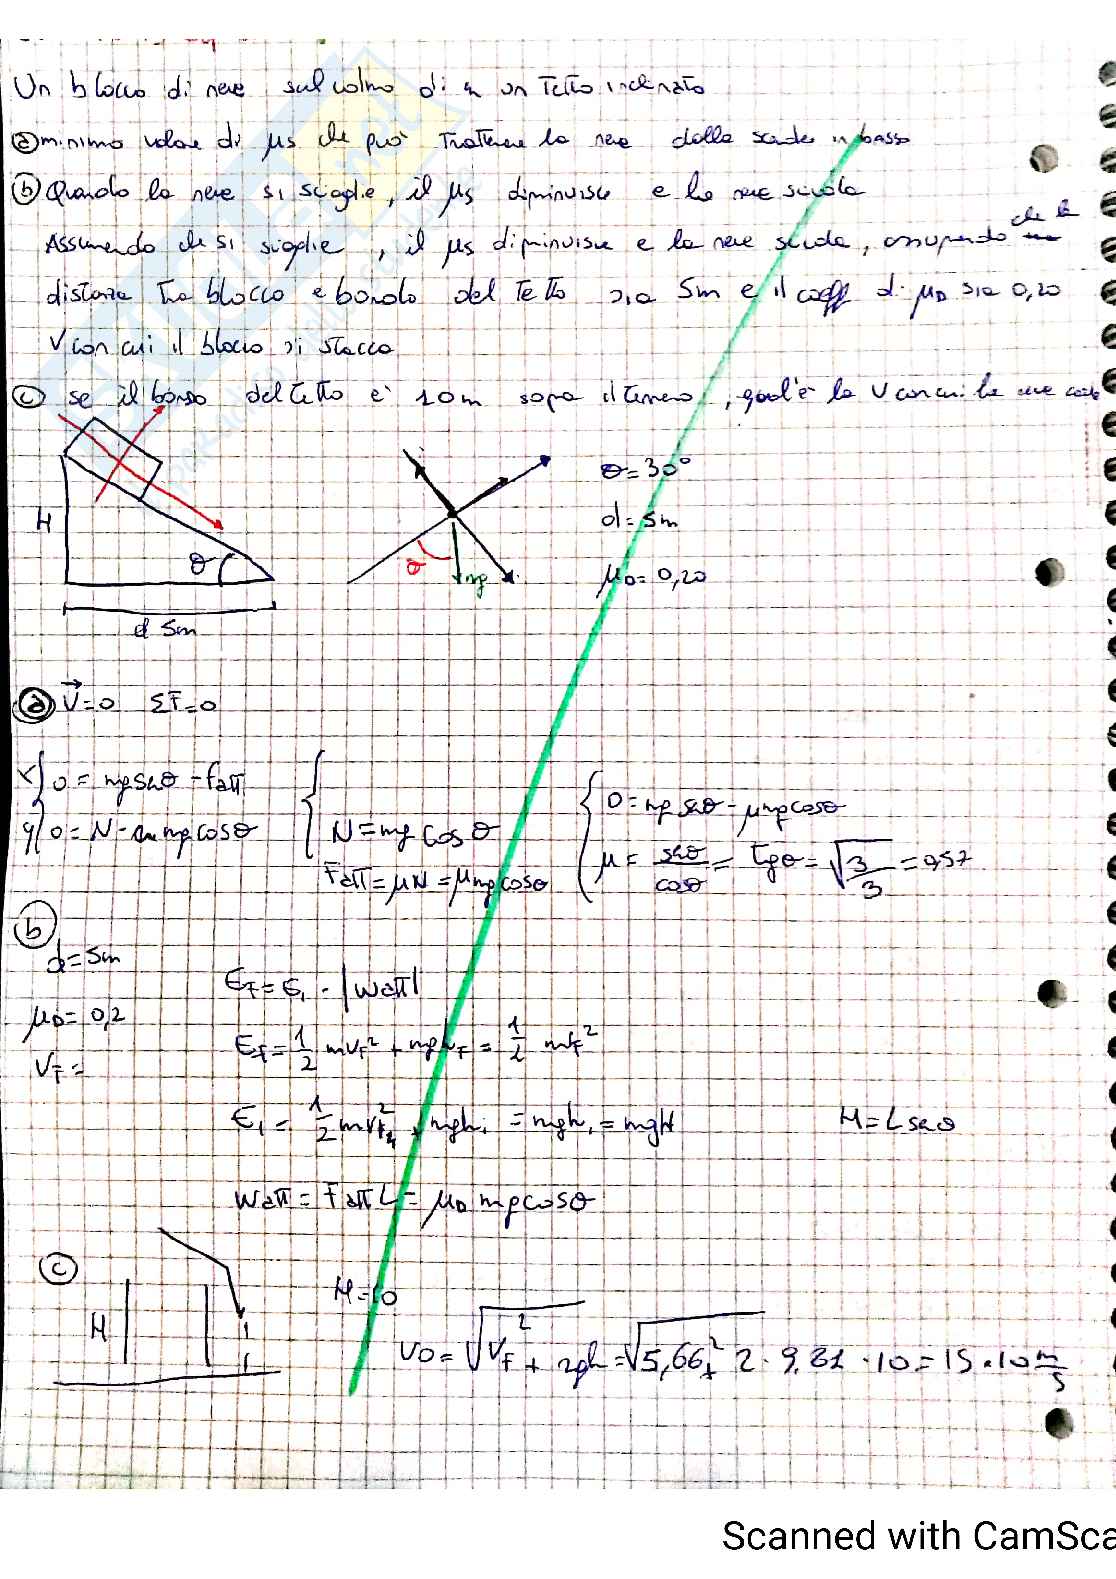 Un blocco di neve sul colmo di un tetto inclinato
ⓐ minimo valore di μs che può trattenere la neve dalla scender in basso
ⓑ Quando la neve si scioglie, il μs diminuisce e la neve scivola
Assumendo che si scioglie, il μs diminuisce e la neve scivola, assumendo che la
distanza tra blocco e bordo del tetto sia 5m e il coeff di μD sia 0,20
V con cui il blocco si stacca
ⓒ se il bordo del tetto è 10m sopra il terreno, qual'è la V con cui la neve cade
H
θ
d 5m
θ
mg
θ=30°
d=5m
μD=0,20
ⓐ V=0 ΣF=0
x{0= mg senθ - fatt
y{0= N - mg cosθ
N=mg cosθ
Fatt=μN=μmg cosθ
0=mg senθ - μmg cosθ
μ= senθ/cosθ = tgθ = √3/3 = 0,57
ⓑ
d=5m
μD=0,2
VF=
EF=Ei - |Watt|
EF=1/2 mVF² + mghF = 1/2 mVF²
Ei=1/2 mVi² + mghi = mghi = mgH
H=L senθ
Watt=Fatt L= μD mg cosθ
ⓒ
H
H=10
VD=√VF²+2gh=√5,66²+2·9,81·10=15.10 m/s
Scanned with CamSca